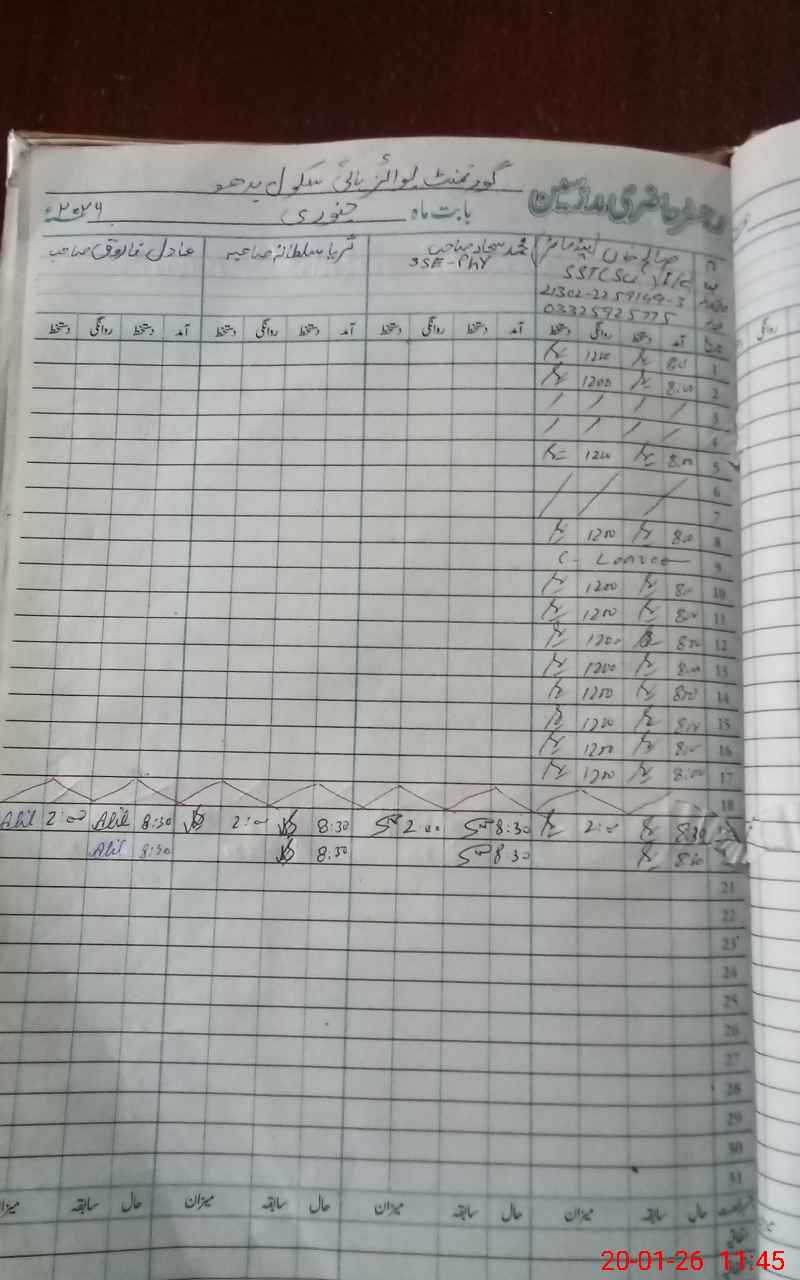 گورنمنٹ بوائز ہائی سکول بدھو
رجسٹر حاضری مدرسین بابت ماہ جنوری ۲۰۲۶
صالح خان
SST(Sci) I/C
21302-2259149-3
03325925775
محمد سجاد صاحب
SSE-PHY
ثریا سلطانہ صاحبہ
عادل فاروق صاحب
آمد دستخط روانگی دستخط آمد دستخط روانگی دستخط آمد دستخط روانگی دستخط آمد دستخط روانگی دستخط
1 8:00 1200
2 8:00 1200
3
4
5 8:00 1200
6
7
8 8:00 1200
9 C- Leave
10 8:00 1200
11 8:00 1200
12 8:00 1200
13 8:00 1200
14 8:00 1200
15 8:00 1200
16 8:00 1200
17 8:00 1200
18
8:30 2:00 8:30 2:00 8:30 2:00 8:30 Adil 2:00 Adil
8:30 8:30 8:30 8:30 Adil
21
22
23
24
25
26
27
28
29
30
31
حال سابقہ میزان حال سابقہ میزان حال سابقہ میزان حال سابقہ میزان
20-01-26 11:45